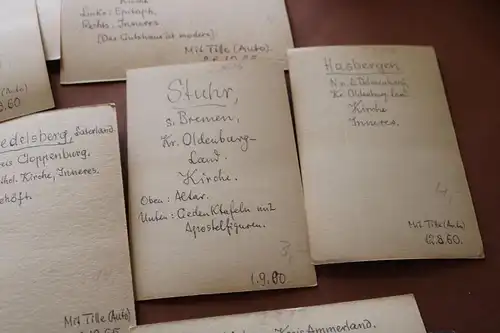 Kirche
Links: Epitaph,
Rechts, Inneres
(Das Gutshaus ist modern)
Mit Tille (Auto)
(Auto)
8.60
edelsberg, Saterland
eis Cloppenburg.
Kirche, Inneres.
Mit Tille (Auto)
Stuhr,
s. Bremen,
Kr. Oldenburg-
Land.
Kirche.
Oben: Altar.
Unten: Gedenktafeln mit
Apostelfiguren.
3,-
1.9.60
Hasbergen
Kr. Oldenburg-Land
Kirche
Inneres.
4,-
Mit Tille (Auto)
12.8.60.
Kreis Ammerland